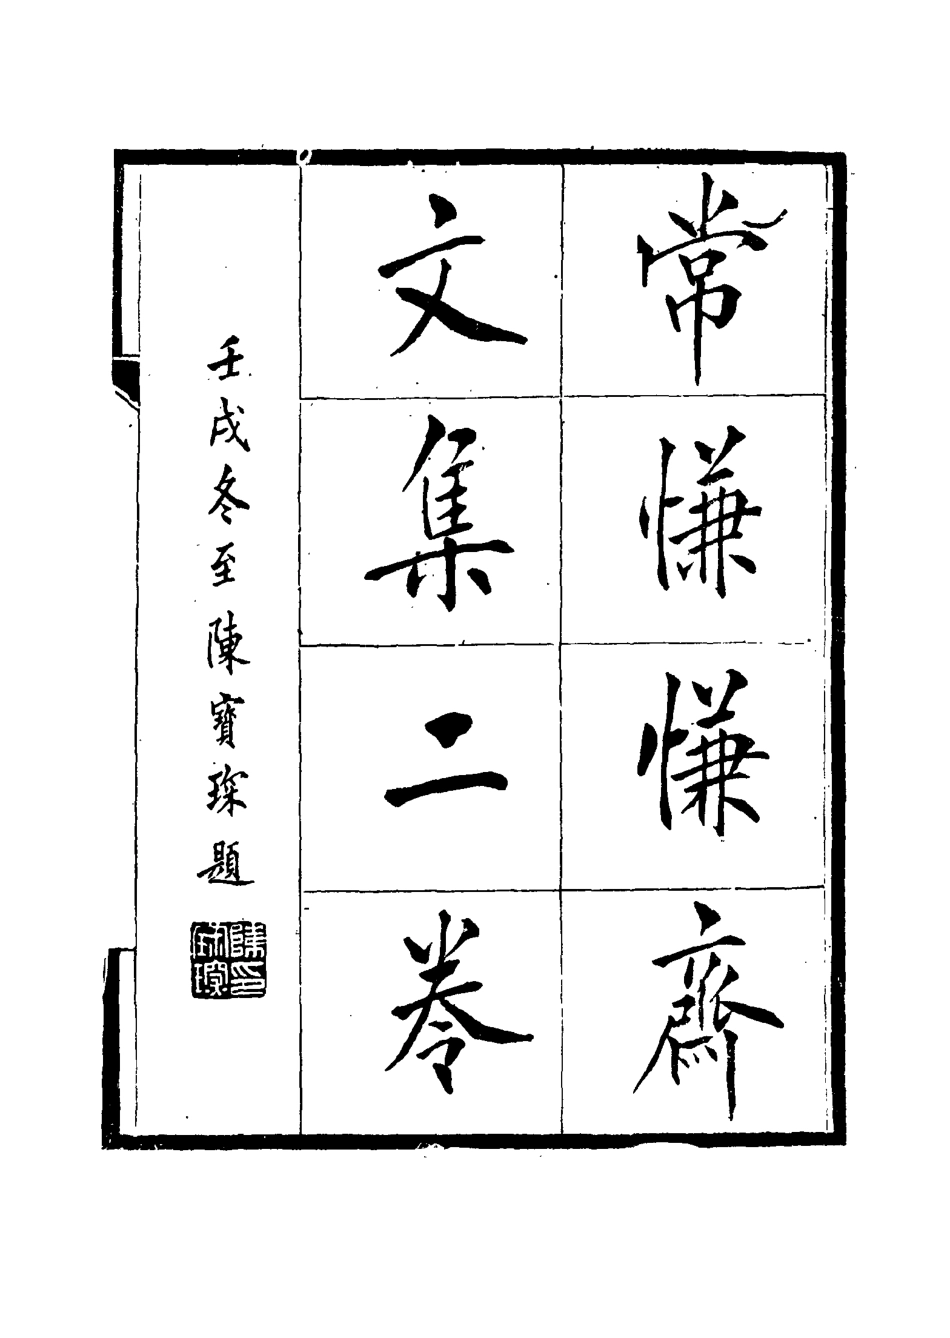 常慊慊齋
文集二卷
壬戌冬至陳寶琛題
陳印
寶琛